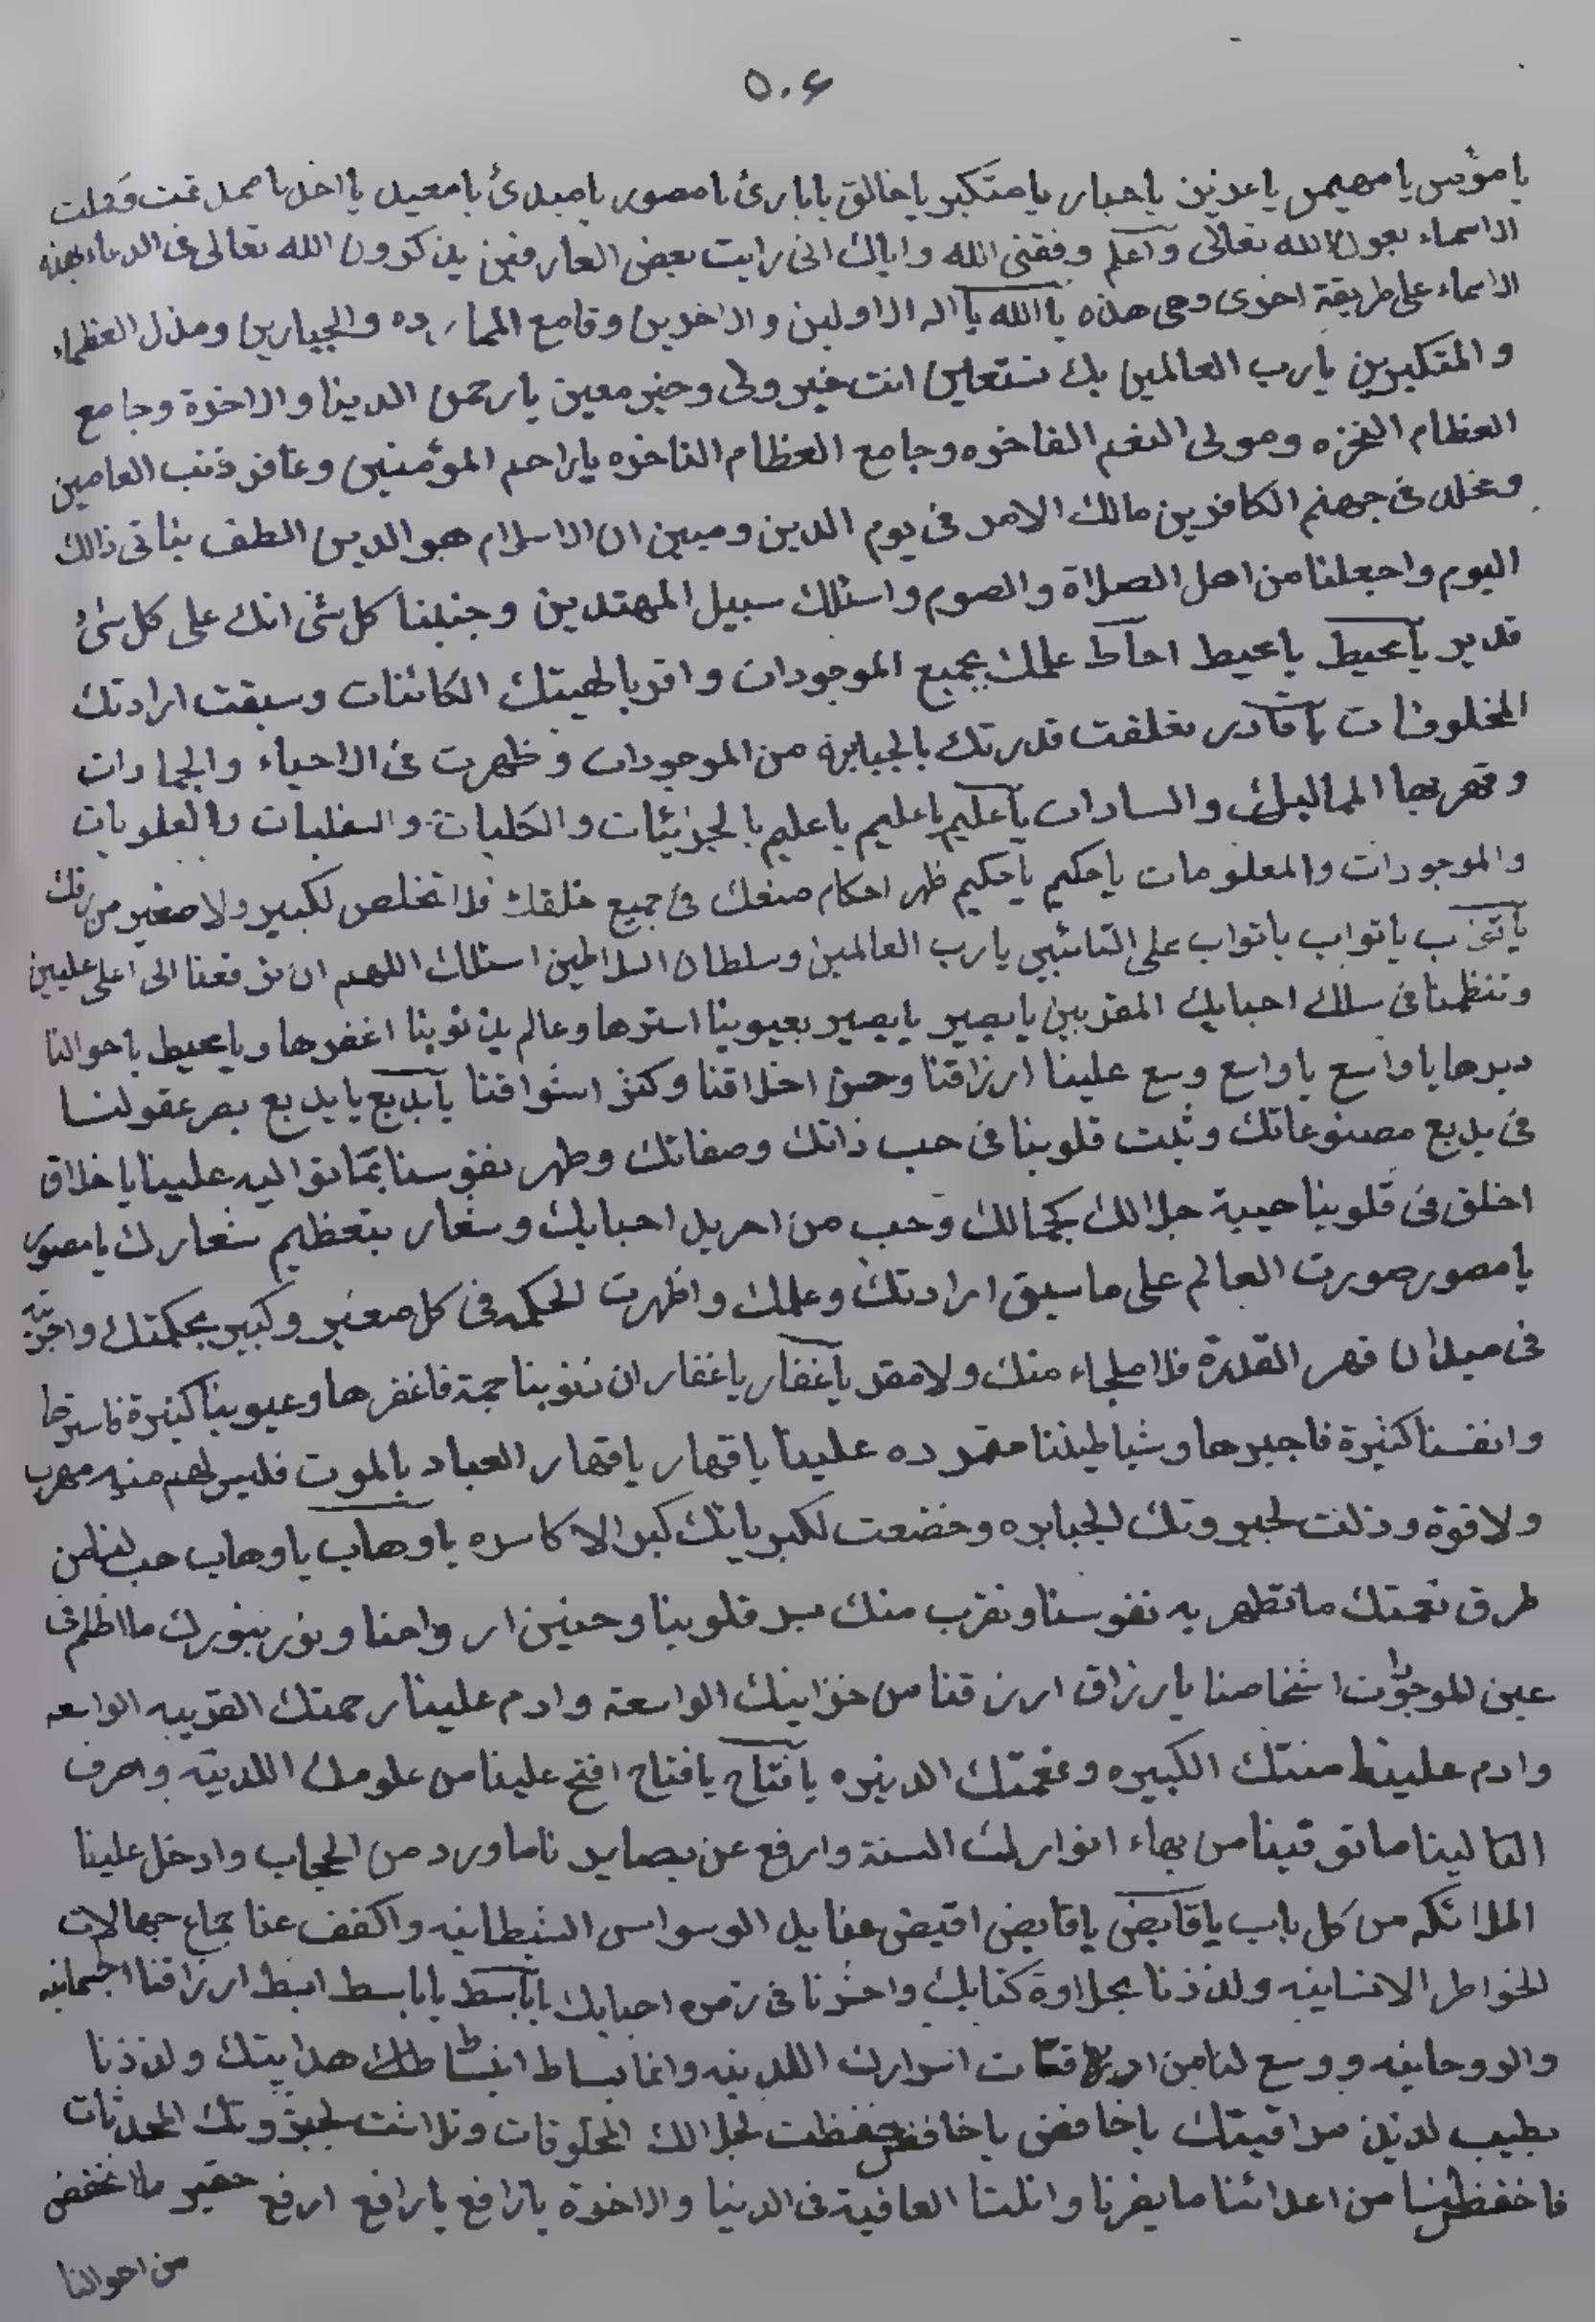 ٥٠٤
يا مؤمن يا مهيمن يا عزيز يا جبار يا متكبر يا خالق يا بارئ يا مصور يا مبدئ يا معيد يا احد يا صمد تمت
الاسماء بعون الله تعالى واعلم وفقنى الله واياك انى رايت بعض العارفين يذكرون الله تعالى فى الدعاء بهذه
الاسماء على طريقة اخرى وهى هذه يا الله يا اله الاولين والاخرين وقامع والجبارين ومذل العظماء
والمتكبرين يا رب العالمين بك نستعين انت خير ولى وخير معين يا رحمن الدنيا والاخرة وجامع
العظام النخره ومولى النعم الفاخره وجامع العظام الناخره يا راحم المؤمنين وغافر ذنب العاصين
ومخلد فى جهنم الكافرين مالك الامر فى يوم الدين ومبين ان الاسلام هو الدين الطف بنا فى ذالك
اليوم واجعلنا من اهل الصلاة والصوم واسئلك سبيل المهتدين وجنبنا كل شئ انك على كل شئ
قدير يا محيط يا محيط احاط علمك بجميع الموجودات واقر بالهيتك الكائنات وسبقت ارادتك
المخلوقات يا قادر تعلقت قدرتك بالجبابرة من الموجودات وظهرت فى الاحياء والجمادات
وقهر بها المماليك والسادات يا عليم يا عليم يا عليم بالجزئيات والكليات والسفليات والعلويات
والموجودات والمعلومات يا حكيم يا حكيم ظهر احكام صنعك فى جميع خلقك فلا تخلص لكبير ولا صغير من رقك
يا تواب يا تواب يا تواب على التائبين يا رب العالمين وسلطان السلاطين اسئلك اللهم ان ترفعنا الى اعلى عليين
وتنظمنا فى سلك احبابك المقربين يا بصير يا بصير بعيوبنا استرها وعالم بذنوبنا اغفرها ويا محيط باحوالنا
دبرها يا واسع يا واسع وسع علينا ارزاقنا وحسن اخلاقنا وكثر اشواقنا يا بديع يا بديع بصر عقولنا
فى بديع مصنوعاتك وثبت قلوبنا فى حب ذاتك وصفاتك وطهر نفوسنا بما تتوق اليه علينا يا خلاق
اخلق فى قلوبنا هيبة جلالك كجمالك وحب من احبابك وشعار بتعظيم شعارك يا مصور
يا مصور صورت العالم على ما سبق ارادتك وعلمك واظهرت الحكمه فى كل صغير وكبير بحكمتك
فى ميدان قهر القدرة فلا ملجاء منك ولا مقر يا غفار يا غفار ان ذنوبنا جمة فاغفرها وعيوبنا كثيرة فاسترها
وانفسنا كثيرة فاجبرها وشياطيننا متمرده علينا يا قهار يا قهار العباد بالموت فليس لهم منه مهرب
ولا قوة وذلت لجبروتك الجبابره وخضعت لكبريائك كبر الاكاسره يا وهاب يا وهاب هب لنا من
طرق نعمتك ما تطهر به نفوسنا وتقرب منك قلوبنا وحنين ارواحنا ونور بنورك ما اظلم فى
عين اشخاصنا يا رزاق ارزقنا من خزاينك الواسعة وادم علينا رحمتك القريبه الواسعه
وادم علينا منتك الكبيره ونعمتك يا فتاح يا فتاح افتح علينا من علومك اللدنية واصرف
الينا ما توقينا من بهاء انوارك السنة وارفع عن بصايرنا ما ورد من الحجاب وادخل علينا
الملائكه من كل باب يا قابض يا قابض اقبض عنا يد الوسواس الشيطانيه واكفف عنا جماع جهالات
الخواطر الانسانيه ولذذنا بحلاوة كتابك واحشرنا فى زمره احبابك يا باسط يا باسط ابسط ارزاقنا الجسمانيه
والروحانيه ووسع لنا من اسرارك اللدنيه وانما بساط هدايتك ولذذنا
بطيب لذيذ مراقبتك يا خافض يا خافض خفضت لجلالك المخلوقات وتلاشت لجبروتك المحدثات
فاخفض من اعدائنا ما يضرنا وانلنا العافية فى الدنيا والاخرة يا رافع يا رافع ارفع حقير ما انخفض
من احوالنا